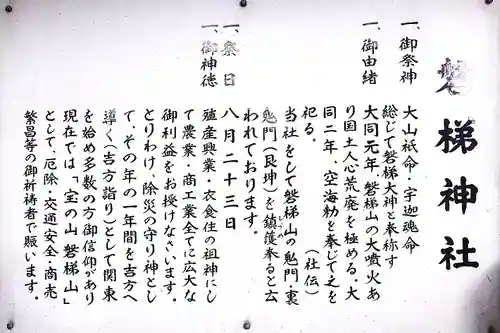 磐梯神社
一、御祭神
大山祇命・宇迦魂命
総じて磐梯大神と奉称す
一、御由緒
大同元年、磐梯山の大噴火あ
り国土人心荒廃を極める。大
同二年、空海勅を奉じて之を
祀る。
(社伝)
当社をして磐梯山の鬼門・裏
鬼門(艮坤)を鎮護奉ると云
われております。
一、祭日
八月二十三日
一、御神徳
殖産興業・衣食住の祖神にし
て農業・商工業全てに広大な
御利益をお授けなさいます。
とりわけ、除災の守り神とし
て、その年の一年間を吉方へ
導く(吉方詣り)として関東
を始め多数の方御信仰があり
現在では「宝の山磐梯山」
として、厄除・交通安全・商売
繁昌等の御祈祷者で賑います。